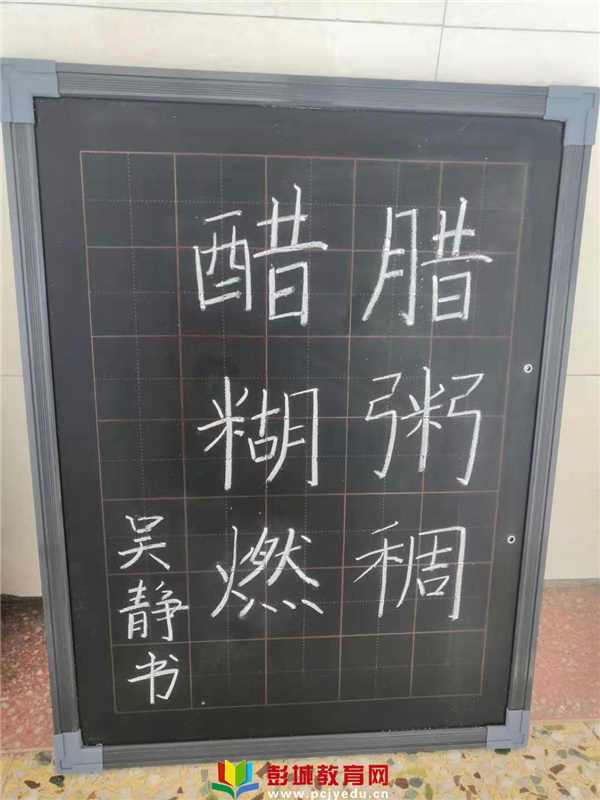 腊粥稠
醋糊燃
吴静书
彭城教育网
www.pcjyedu.cn